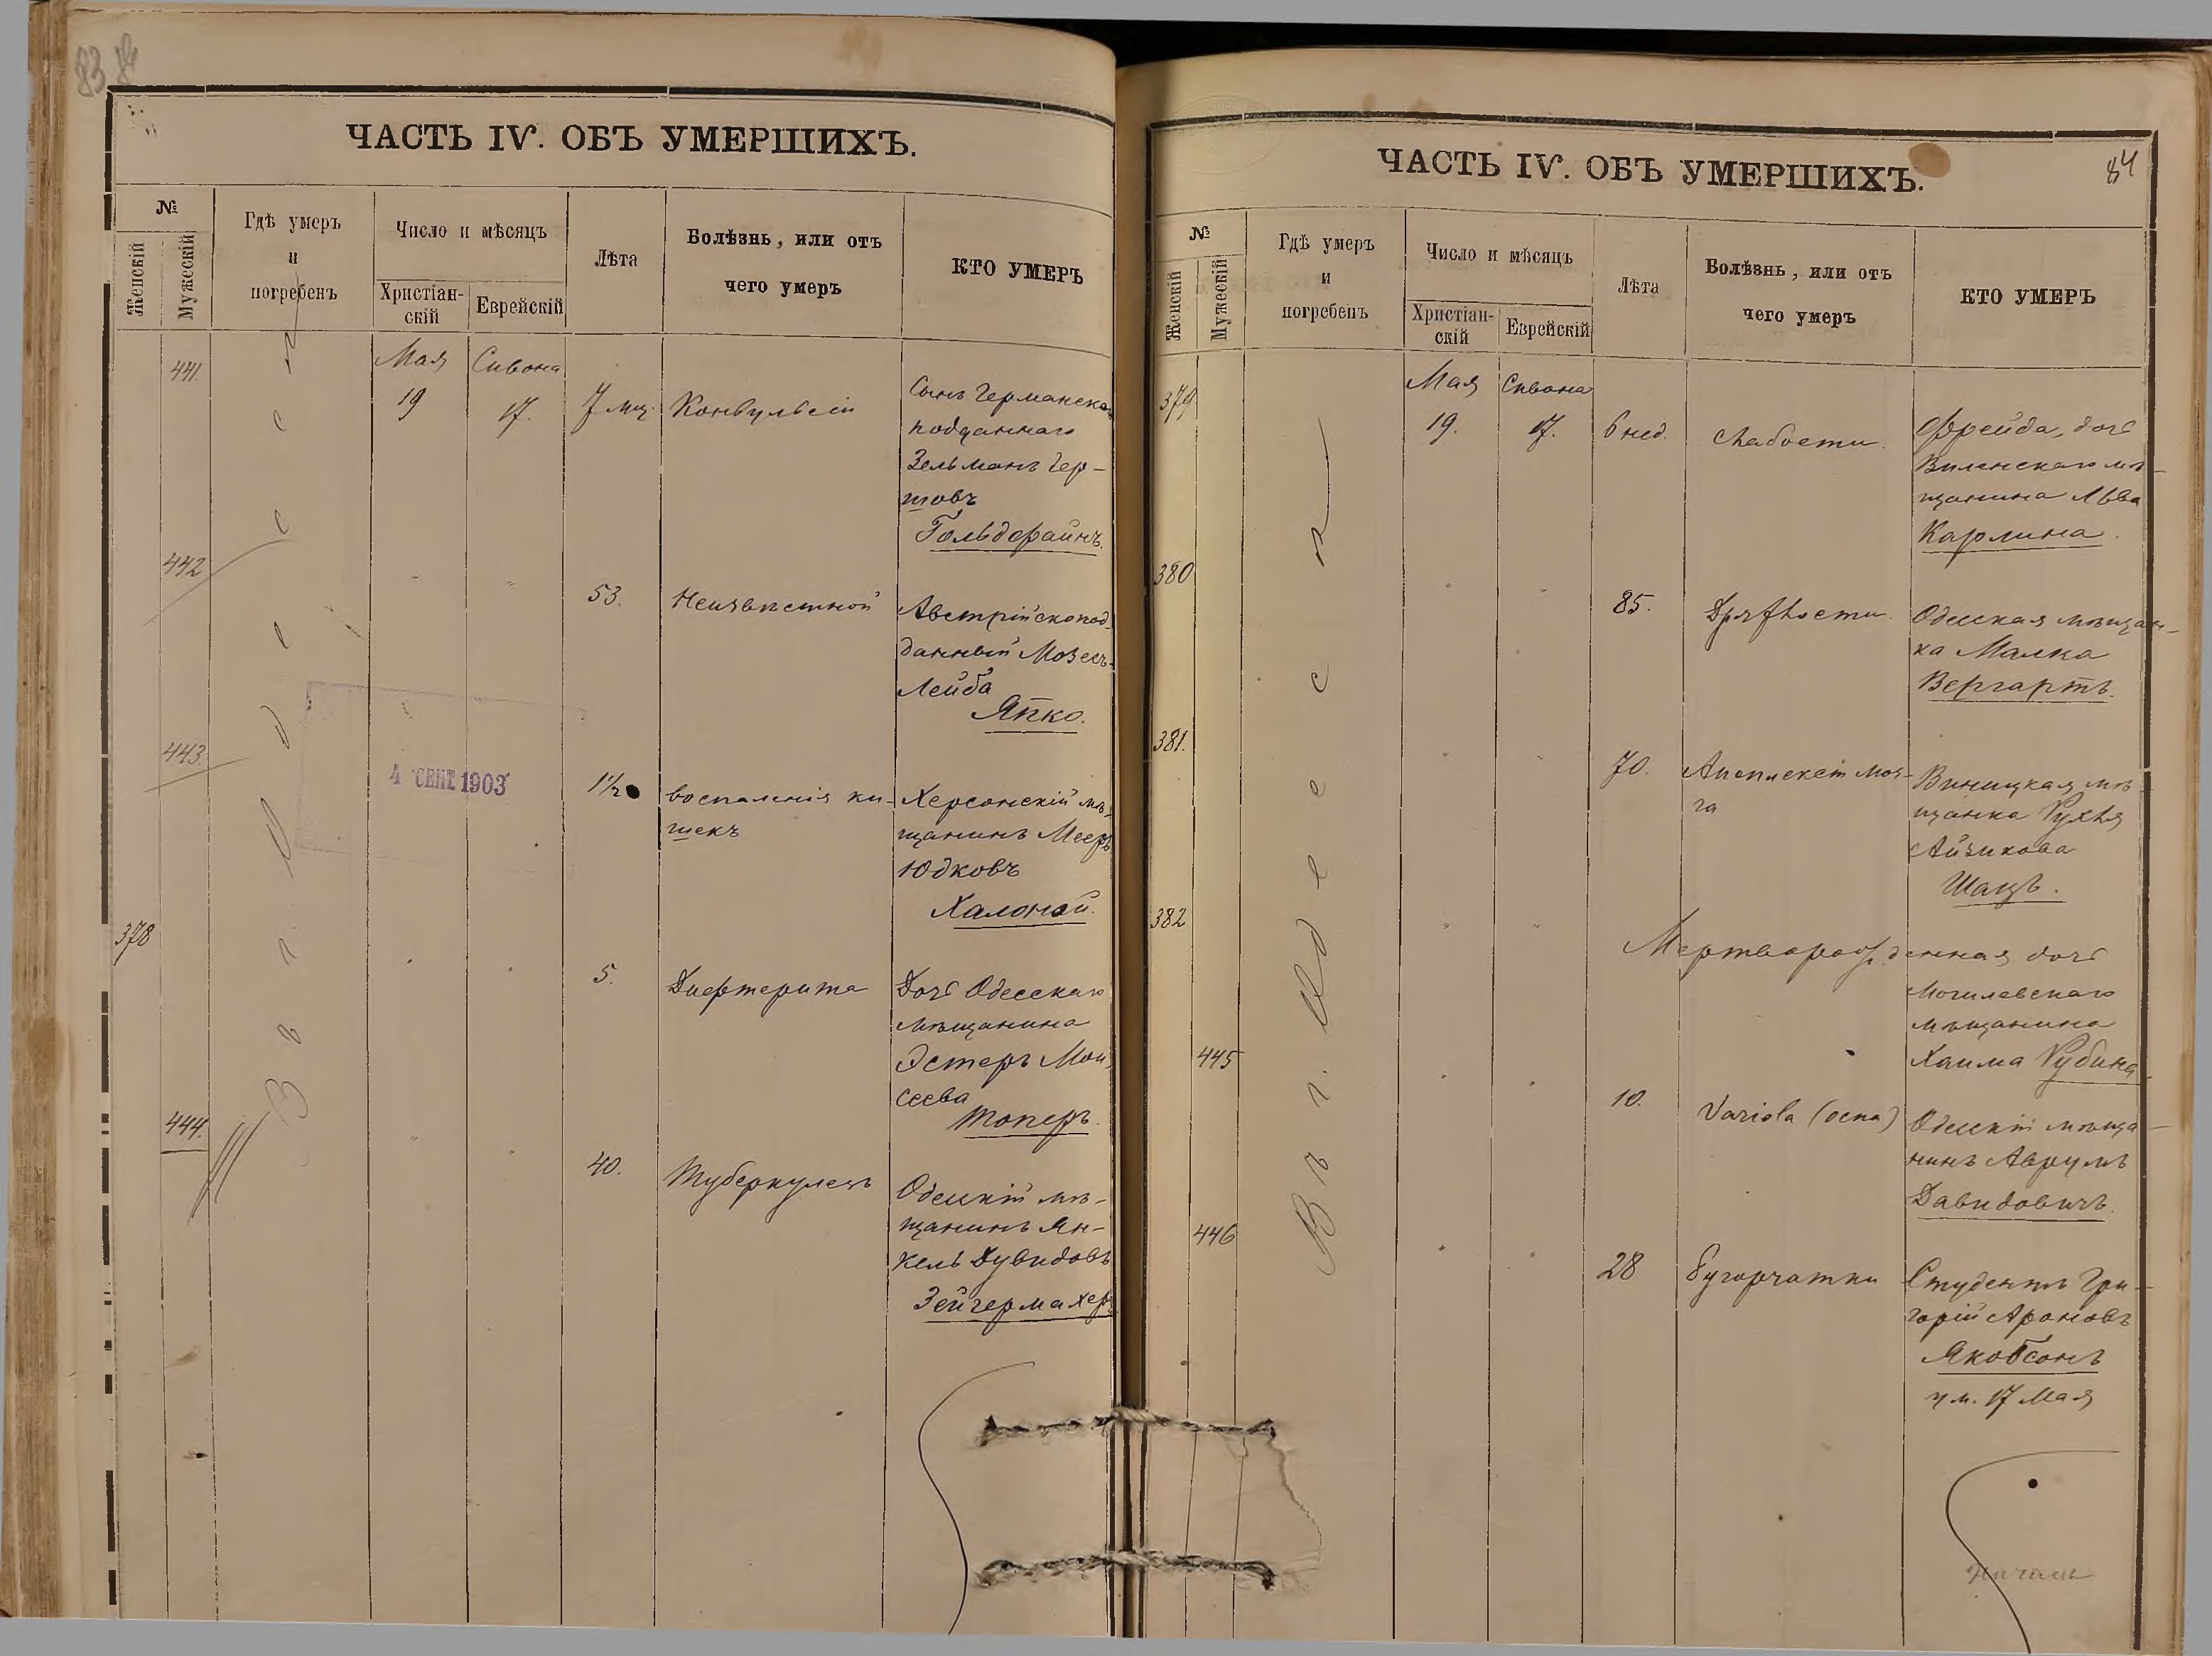 83 84
ЧАСТЬ IV. ОБЪ УМЕРШИХЪ.
№
Женскій
Мужескій
Гдѣ умеръ
и
погребенъ
Число и мѣсяцъ
Христіан-
скій
Еврейскій
Лѣта
Болѣзнь, или отъ
чего умеръ
КТО УМЕРЪ
Въ г. Одессѣ
441.
Мая
19
Сивона
17.
7 мѣц.
Конвульсіи
Сынъ Германскаго
подданнаго
Зельманъ Гер-
шовъ
Гольдфайнъ.
442
53.
Неизвѣстной
Австрійскопод-
данный Мозесъ-
Лейба
Япко.
443.
1 1/2
воспаленія ки-
шекъ
Херсонскій мѣ-
щанинъ Мееръ
Юдковъ
Халоной.
4 СЕНТ 1903
378
5.
Дифтерита
Дочь Одесскаго
мѣщанина
Эстеръ Мои-
сеева
Топеръ.
444.
40.
Туберкулезъ
Одесскій мѣ-
щанинъ Ян-
кель Дувидовъ
Зейгермахеръ
84
ЧАСТЬ IV. ОБЪ УМЕРШИХЪ.
№
Женскій
Мужескій
Гдѣ умеръ
и
погребенъ
Число и мѣсяцъ
Христіан-
скій
Еврейскій
Лѣта
Болѣзнь, или отъ
чего умеръ
КТО УМЕРЪ
Въ г. Одессѣ
379
Мая
19.
Сивона
17.
6 нед.
Слабости.
Фрейда, дочь
Виленскаго мѣ-
щанина Льва
Карлина.
380
85.
Дряхлости.
Одесская мѣщан-
ка Малка
Вергартъ.
381.
70.
Апоплексіи моз-
га
Виницкая мѣ-
щанка Рухля
Айзикова
Шацъ.
382
Мертворожденная дочь
Могилевскаго
мѣщанина
Хаима Рубина
445
10.
Variola (оспа)
Одесскій мѣща-
нинъ Аврумъ
Давидовичъ.
446
28
Бугорчатки
Студентъ Гри-
горій Ароновъ
Якобсонъ
ум. 17 Мая